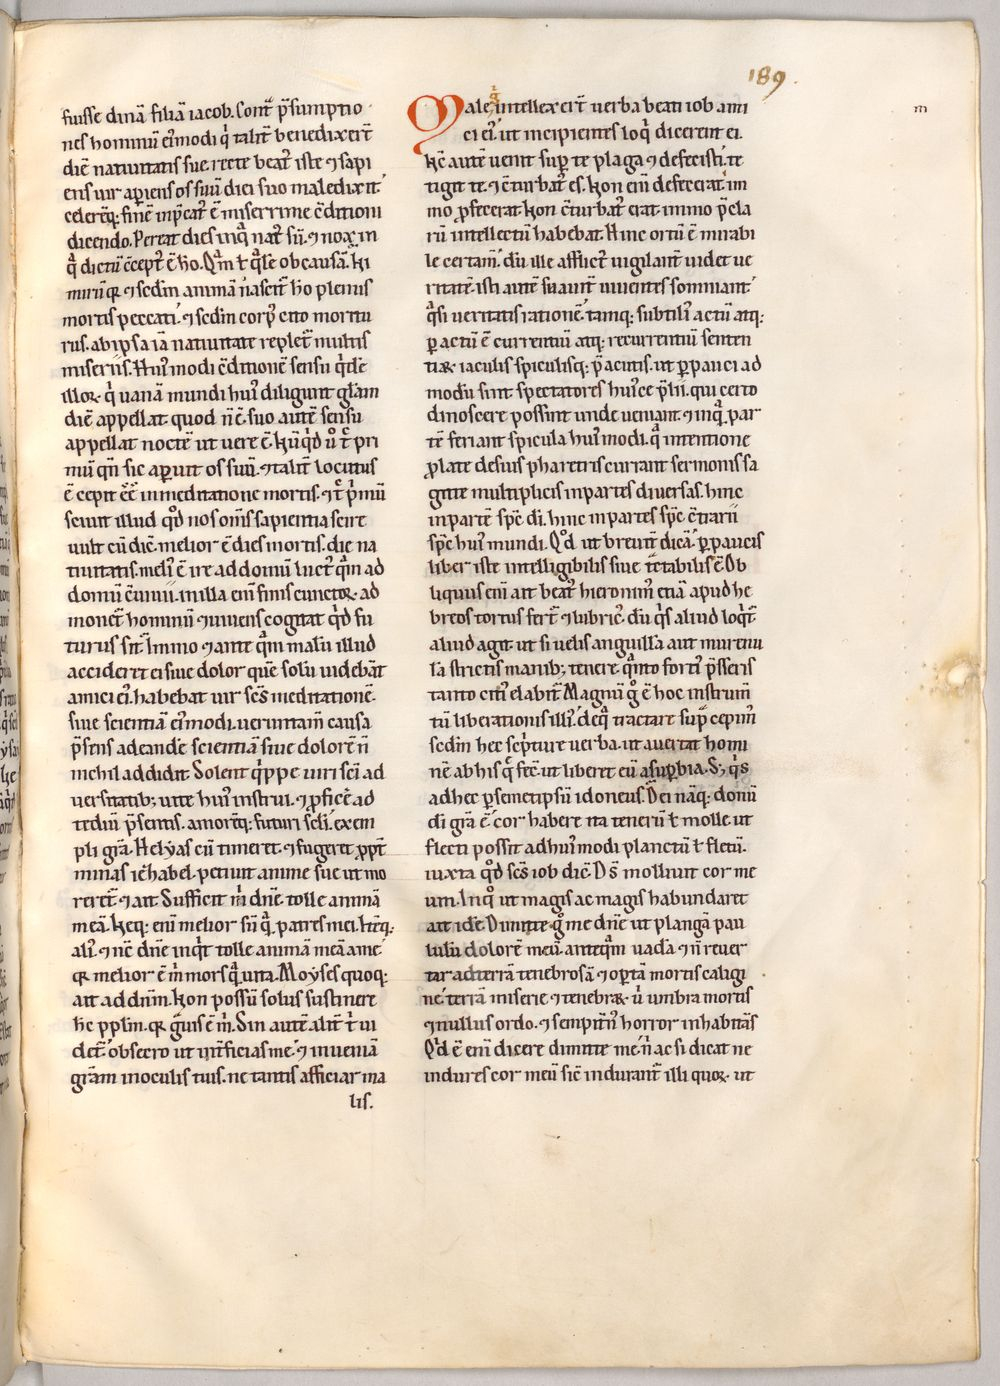 189
fuisse dinā filiā iacob. Cont̄ p̄sumptio
nes hominū ei᷒modi q̇ talit̄ benedixer̄t
diē natiuitatis sue. recte beat᷒ iste ⁊ sapi
ens uir aperiens os suū diei suo maledixit
celereq; finē inp̄cat᷒ ē miserrime c̄ditioni
dicendo. Pereat dies inq̇ nat᷒ sū. ⁊ nox in
q̇ dictū c̄cept᷒ ē hō. Q̇m ł q̇le ob causā. Ni
mirū qꝛ ⁊ sc̄dm animā nascit᷒ hō plenus
mortis peccati. ⁊ sc̄dm corp᷒ cito moritu
rus. ab ipsa iā natiuitate replet᷒ multis
miseriis. Hui᷒modi c̄ditionē sensu q̇dē
illoꝝ q̇ uanā mundi hui᷒ diligunt gl̄am
diē appellat quod n̄ ē. suo autē sensu
appellat noctē ut uere ē.
mū qn̄ sic aperuit os suū. ⁊ talit᷒ locutus
ē cepit eē̄ in meditatione mortis. ⁊ t̄ p̄mū
sciuit illud qd̄ nos om̄s sapientia scire
uult cū dic̄. melior ē dies mortis. die na
tiuitatis. meli᷒ ē ire ad domū luct᷒ q̄m ad
domū c̄uiuii. in illa eni finis cunctoꝝ ad
monet᷒ hominū ⁊ uiuens cogitat q̇d fu
turus sit. Immo ⁊ ante q̄m malū illud
accideret ei siue dolor quē solū uidebāt
amici ei᷒. habebat uir sc̄s meditationē
siue scientiā ei᷒modi. ueruntam̄ causa
p̄sens adeande scientiā siue dolorē n̄
nichil addidit. Solent q̇ppe uiri sc̄i ad
uersitatib; uite hui᷒ instrui. ⁊ ꝓficē ad
tediū p̄sentis. amorēq; futuri sc̄li. exem
pli gr̄a. Helyas cū timeret. ⁊ fugeret ꝓpt᷒
minas iezabel. petiuit anime sue ut mo
reret᷒ ⁊ ait. Sufficit m̄ dn̄e. tolle animā
meā. Neq; eni melior sū q̇ patres mei. Itēq;
ali᷒. ⁊ nc̄ dn̄e inqt̄ tolle animā meā a me.
qꝛ melior ē m̄ mors q̄ uita. Moyses quoq;
ait ad dn̄m. Non possū solus sustinere
hc̄ pp̄lm. qꝛ g̊uis ē m̄. Sin autē alit᷒ t̄ ui
det᷒. obsecro ut int̄ficias me. ⁊ inueniā
gr̄am in oculis tuis. ne tantis afficiar ma
lis.
Male g̊ intellexer̄t uerba beati iob ami
ci ei᷒. ut incipientes loq̇ dicerent ei.
Nc̄ autē uenit sup̄ te plaga ⁊ defecisti. te
tigit te. ⁊ c̄turbat᷒ es. Non enī defecerat. im
mo ꝓfecerat. Non c̄turbat᷒ erat. immo p̄cla
rū intellectū habebat. Hinc ortū ē mirabi
le certam̄. dū ille afflict᷒ uigilant᷒ uidet ue
ritatē. isti autē suauit᷒ uiuentes somniant
q̇si ueritatis rationē. tamq; subtili᷒ actū atq;
peractū ē currentiū atq; recurrentiū senten
tiaꝝ iaculis spiculisq; p̄acutis. ut perpauci ad
modū sint spectatores hui᷒ce p̄lii. qui certo
dinoscere possint unde ueniant. ⁊ inq̄ par
tē feriant spicula hui᷒modi. q̄ intentione
ꝓlate de suis pharetris curant sermonis sa
gitte multiplicis in partes diuersas. hinc
in partē sp̄c di. hinc in partes sp̄c c̄trarii
sp̄c hui᷒ mundi. Qd̄ ut breuit᷒ dicā. perpaucis
liber iste intelligibilis siue tētabilis ē. Ob
liquus eni ait beat᷒ hieronim᷒ etiā apud he
breos totus fert᷒ ⁊ lubric᷒. dū q̇s aliud loqt̄᷒
aliud agit. ut si uelis anguillā aut murenu
lā strictis manib; tenere. q̇nto forti᷒ p̄sseris
tanto citi᷒ elabit᷒. Magnū g̊ ē hoc instrum̄
tū liberationis illi᷒. de q̇ tractare sup̄ cepim᷒
sc̄dm hec sc̄pture uerba. ut auertat homi
nē ab his q̄ fec̄. ut liberet eū a superbia. S; q̇s
ad hec per semetipsū idoneus. Dei nāq; donū
di gr̄a ē cor habere ita tenerū ł molle ut
flecti possit ad hui᷒modi planctū ł fletū.
iuxta qd̄ sc̄s iob dic̄. Ds̄ molliuit cor me
um. In q̊ ut magis ac magis habundaret
ait idē. Dimitte g̊ me dn̄e ut plangā pau
lulū dolorē meū. anteq̄m uadā ⁊ n̄ reuer
tar ad terrā tenebrosā ⁊ opertā mortis caligi
ne. terrā miserie ⁊ tenebraꝝ. u᷒ umbra mortis
⁊ nullus ordo. ⁊ sempit᷒n᷒ horror inhabitās
Qd̄ ē enī dicere dimitte me. n̄ ac si dicat ne
indures cor meū sic̄ indurant᷒ illi quoꝝ ut
m